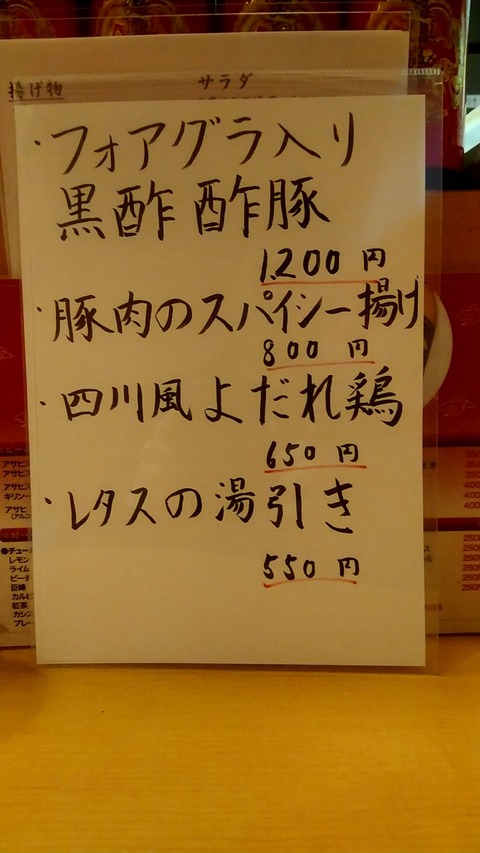 揚げ物
サラダ
・フォアグラ入り
黒酢酢豚
1,200円
・豚肉のスパイシー揚げ
800円
・四川風よだれ鶏
650円
・レタスの湯引き
550円
アサヒ
アサヒ
キリン
アサヒ
(アルコ
●チュー
レモン
ライム
ピーチ
巨峰
カルピ
紅茶
カシス
プレー
350
350
400
400
250
250
250
250